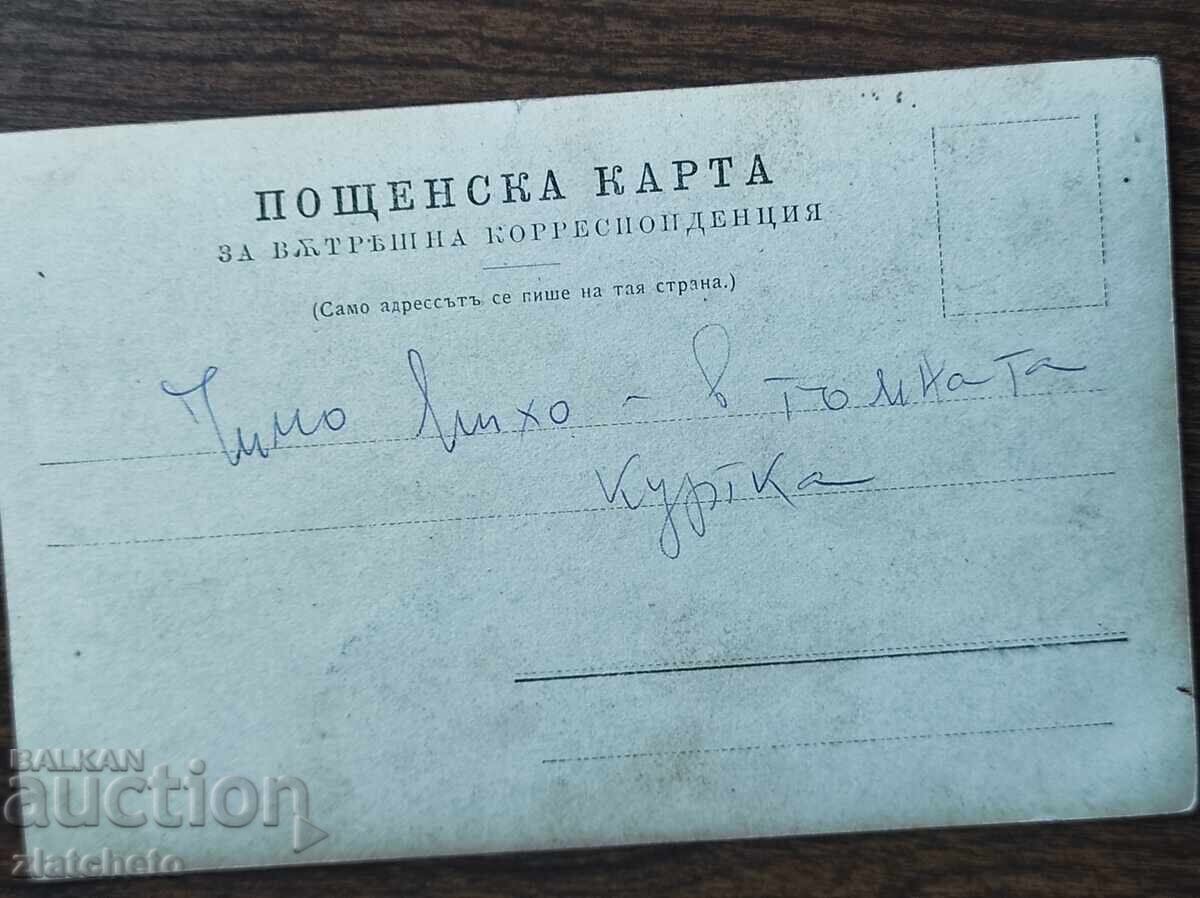 ПОЩЕНСКА КАРТА
ЗА ВѪТРѢШНА КОРРЕСПОНДЕНЦИЯ
(Само адрессътъ се пише на тая страна.)
Чичо Михо - в тъмната
куртка
BALKAN
auction
zlatcheto